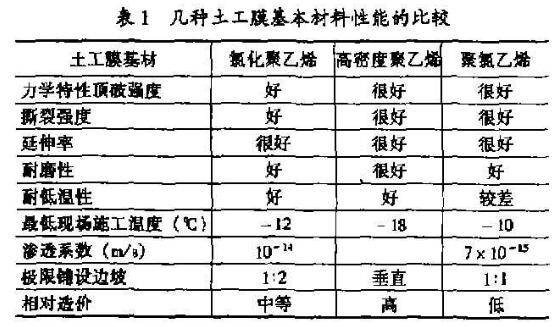 表1 几种土工膜基本材料性能的比较
土工膜基材 氯化聚乙烯 高密度聚乙烯 聚氯乙烯
力学特性顶破强度 好 很好 很好
撕裂强度 好 很好 很好
延伸率 很好 很好 很好
耐磨性 好 很好 好
耐低温性 好 好 较差
最低现场施工温度（℃） －12 －18 －10
渗透系数（m/s） 10⁻¹⁴ 7×10⁻¹⁵
极限铺设边坡 1:2 垂直 1:1
相对造价 中等 高 低